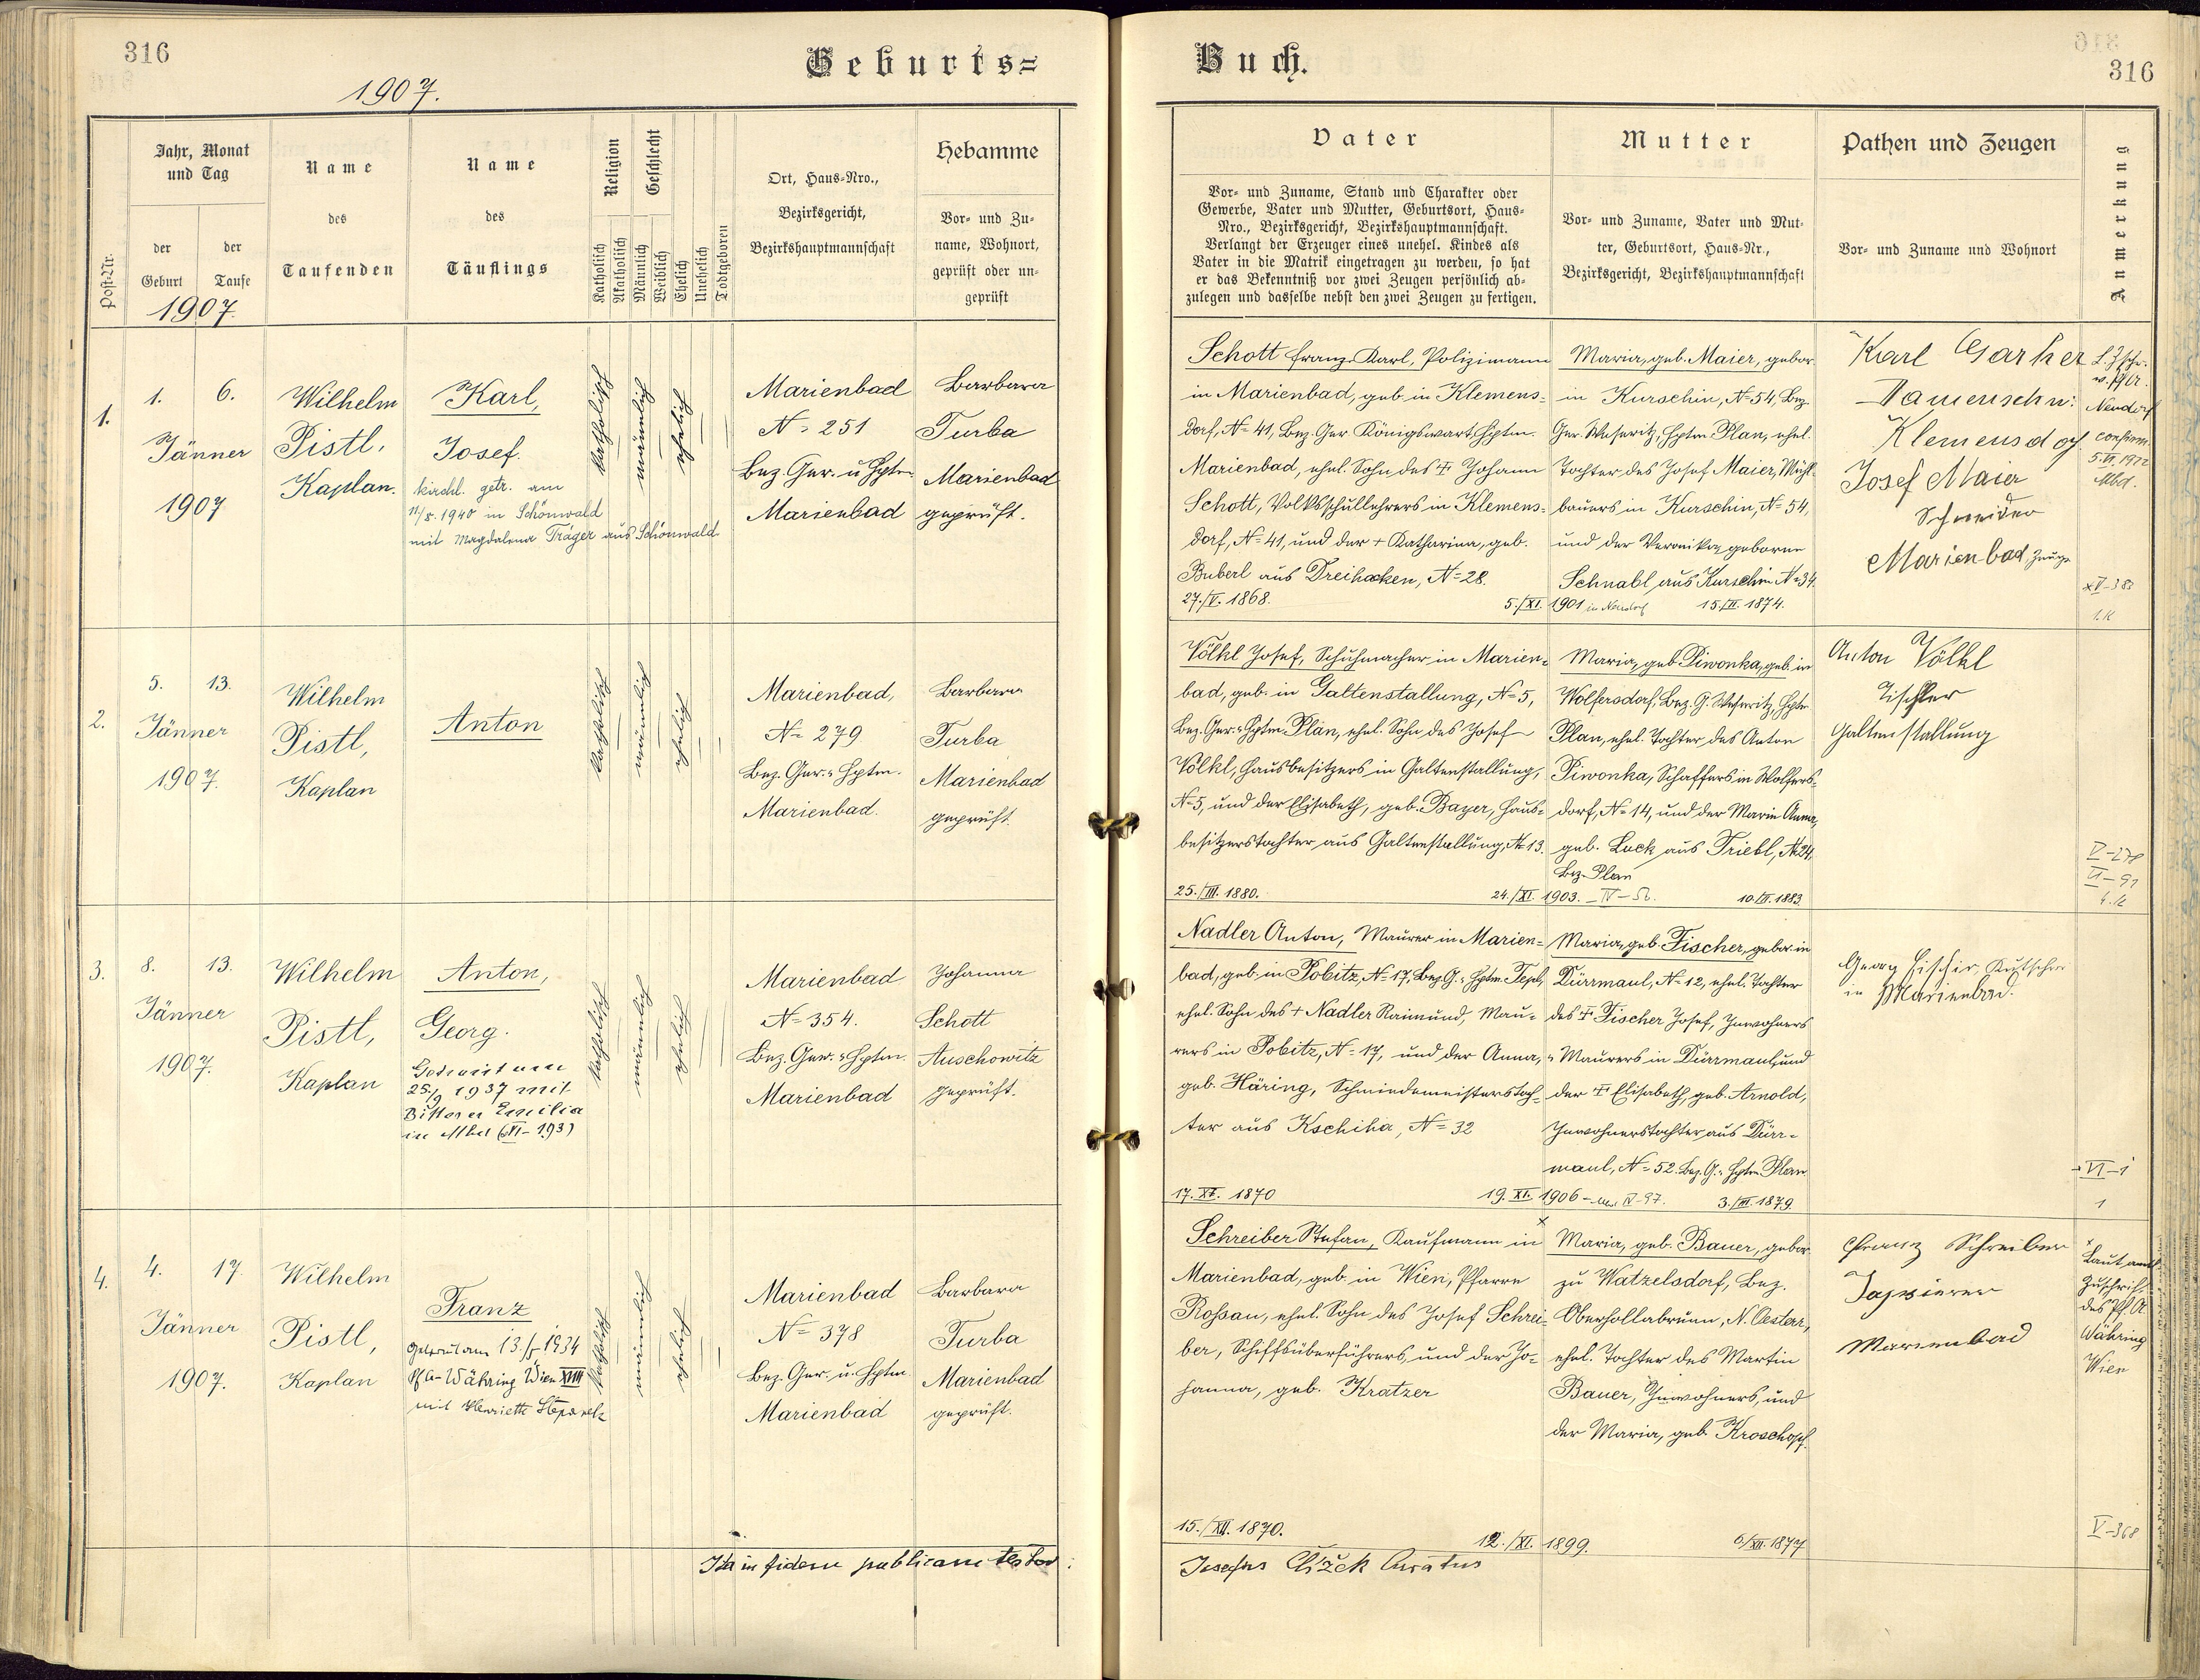 316
Geburts=
1907.
Jahr, Monat
und Tag
Post-Nr.
der
Geburt
der
Taufe
1907.
Name
des
Taufenden
Name
des
Täuflings
Religion
Katholisch
Akatholisch
Geschlecht
Männlich
Weiblich
Ehelich
Unehelich
Todtgeboren
Ort, Haus-Nro.,
Bezirksgericht,
Bezirkshauptmannschaft
Hebamme
Vor- und Zu-
name, Wohnort,
geprüft oder un-
geprüft
1.
1. 6.
Jänner
1907
Wilhelm
Pistl,
Kaplan.
Karl,
Josef.
kirchl. getr. am
11/5. 1940 in Schönwald
mit Magdalena Träger aus Schönwald.
katholisch
männlich
ehelich
Marienbad
No 251
Bez. Ger. u. Hptm.
Marienbad
Barbara
Turba
Marienbad
geprüft.
2.
5. 13.
Jänner
1907.
Wilhelm
Pistl,
Kaplan
Anton
katholisch
männlich
ehelich
Marienbad,
No 279
Bez. Ger. u. Hptm.
Marienbad.
Barbara
Turba
Marienbad
geprüft.
3.
8. 13.
Jänner
1907.
Wilhelm
Pistl,
Kaplan
Anton,
Georg.
Getraut am
25./9 1937 mit
Bittner Emilia
in Mbd (VI-193)
katholisch
männlich
ehelich
Marienbad
No 354.
Bez. Ger. u. Hptm.
Marienbad
Johanna
Schott
Auschowitz
geprüft.
4.
4. 17.
Jänner
1907.
Wilhelm
Pistl,
Kaplan
Franz
Getraut am 13./5 1934
Pf. A- Währing Wien XVIII
mit Henriette
katholisch
männlich
ehelich
Marienbad
No 378
Bez. Ger. u. Hptm.
Marienbad
Barbara
Turba
Marienbad
geprüft.
Ita in fidem publicam testor:
Buch.
316
Vater
Vor- und Zuname, Stand und Charakter oder
Gewerbe, Vater und Mutter, Geburtsort, Haus-
Nro., Bezirksgericht, Bezirkshauptmannschaft.
Verlangt der Erzeuger eines unehel. Kindes als
Vater in die Matrik eingetragen zu werden, so hat
er das Bekenntniß vor zwei Zeugen persönlich ab-
zulegen und dasselbe nebst den zwei Zeugen zu fertigen.
Mutter
Vor- und Zuname, Vater und Mut-
ter, Geburtsort, Haus-Nr.,
Bezirksgericht, Bezirkshauptmannschaft
Pathen und Zeugen
Vor- und Zuname und Wohnort
Anmerkung
Schott Franz Karl, Polizimann
in Marienbad, geb. in Klemens=
dorf, No 41, Bez. Ger. Königswart, Hptm.
Marienbad, ehel. Sohn des † Johann
Schott, Volksschullehrers in Klemens=
dorf, No 41, und der † Katharina, geb.
Buberl aus Dreihacken, No 28.
27./V. 1868.
5./XI. 1901 in Neudorf
Maria, geb. Maier, gebor.
in Kurschin, No 54, Bez.
Ger. Weseritz, Hptm. Plan, ehel.
Tochter des Josef Maier, Mühl-
bauers in Kurschin, No 54,
und der Veronika, geborne
Schnabl aus Kurschin No 34.
15./II. 1874.
Karl
Damenschn:
Klemensdorf
Josef Maier
Schneider
Marienbad, Zeuge
Neudorf
confirm.
5.VI.1922
Mbd.
Völkl Josef, Schuhmacher in Marien=
bad, geb. in Galtenstallung, No 5,
Bez. Ger. u. Hptm. Plan, ehel. Sohn des Josef
Völkl, Hausbesitzers in Galtenstallung,
No 5, und der Elisabeth, geb. Bayer, Haus=
besitzerstochter aus Galtenstallung, No 13.
25./III. 1880.
24./XI. 1903.
Maria, geb. Piwonka, geb. in
Wolfersdorf, Bez. G. Weseritz, Hptm
Plan, ehel. Tochter des Anton
Piwonka, Schaffers in Wolfers-
dorf, No 14, und der Maria Anna,
geb. Lock aus Triebl, No 24,
Bez. Plan
10./II. 1883.
Anton Völkl
Tischler
Galtenstallung
V-278
VI-91
Nadler Anton, Maurer in Marien=
bad, geb. in Pobitz, No 17, Bez. G. u. Hptm. Tepl,
ehel. Sohn des † Nadler Raimund, Mau=
rers in Pobitz, No 17, und der Anna,
geb. Häring, Schmiedemeisterstoch-
ter aus Kschiha, No 32
17. XI. 1870
19. XI. 1906
Maria, geb. Fischer, gebor. in
Dürrmaul, No 12, ehel. Tochter
des † Fischer Josef, Inwohners
u. Maurers in Dürrmaul, und
der † Elisabeth, geb. Arnold,
Inwohnerstochter aus Dürr-
maul, No 52. Bez. G. u. Hptm. Plan
3./III. 1879.
Georg Fischer, Kutscher
in Marienbad.
VI-1
1
Schreiber Stefan, Kaufmann in
Marienbad, geb. in Wien, Pfarre
Roßau, ehel. Sohn des Josef Schrei=
ber, Schiffsüberführers, und der Jo=
hanna, geb. Kratzer
15./XII. 1870.
12./XI. 1899.
Maria, geb. Bauer, gebor.
zu Watzelsdorf, Bez.
Oberhollabrunn, N. Oesterr.,
ehel. Tochter des Martin
Bauer, Inwohners, und
der Maria, geb. Kroschopf.
6/XII. 1877
Franz Schreiber
Tapzierer
Marienbad
Laut amtl.
Zuschrift
des Pf. A
Währing
Wien
V-368
Josephus Čížek Curatus